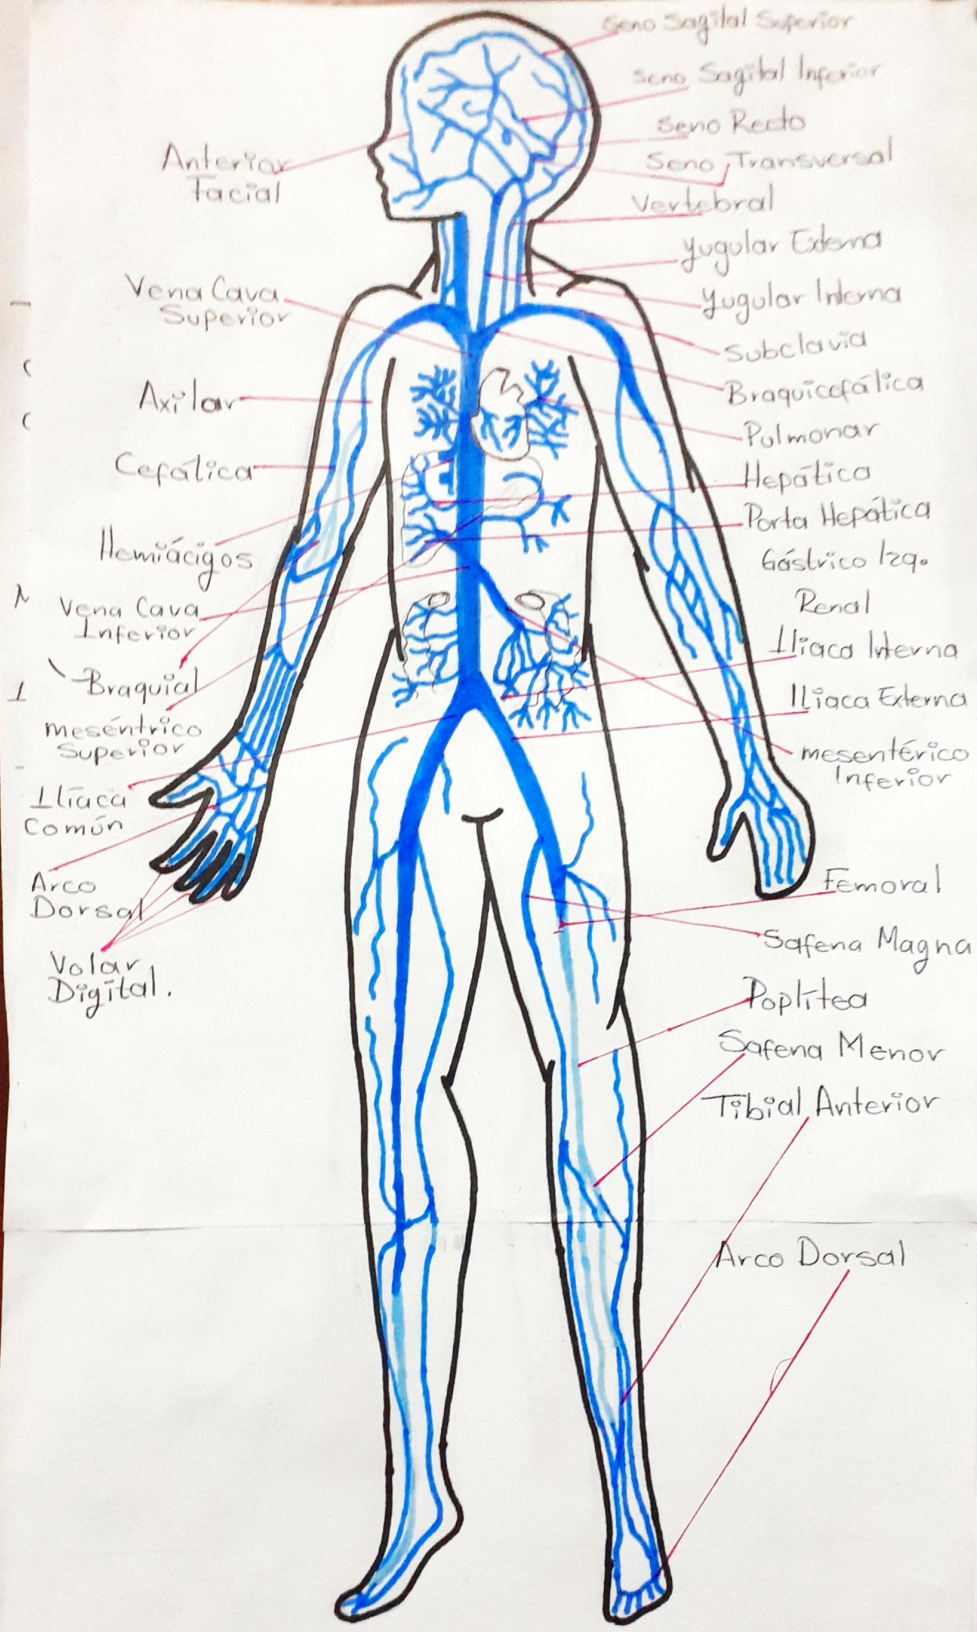 Seno Sagital Superior
Seno Sagital Inferior
Seno Recto
Seno Transversal
Vertebral
Yugular Externa
Yugular Interna
Subclavia
Braquicefálica
Pulmonar
Hepática
Porta Hepática
Gástrico Izq.
Renal
Iliaca Interna
Iliaca Externa
mesentérico
Inferior
Femoral
Safena Magna
Poplítea
Safena Menor
Tibial Anterior
Arco Dorsal
Anterior
Facial
Vena Cava
Superior
Axilar
Cefálica
Hemiácigos
Vena Cava
Inferior
Braquial
meséntrico
Superior
Ilíaca
Común
Arco
Dorsal
Volar
Digital.